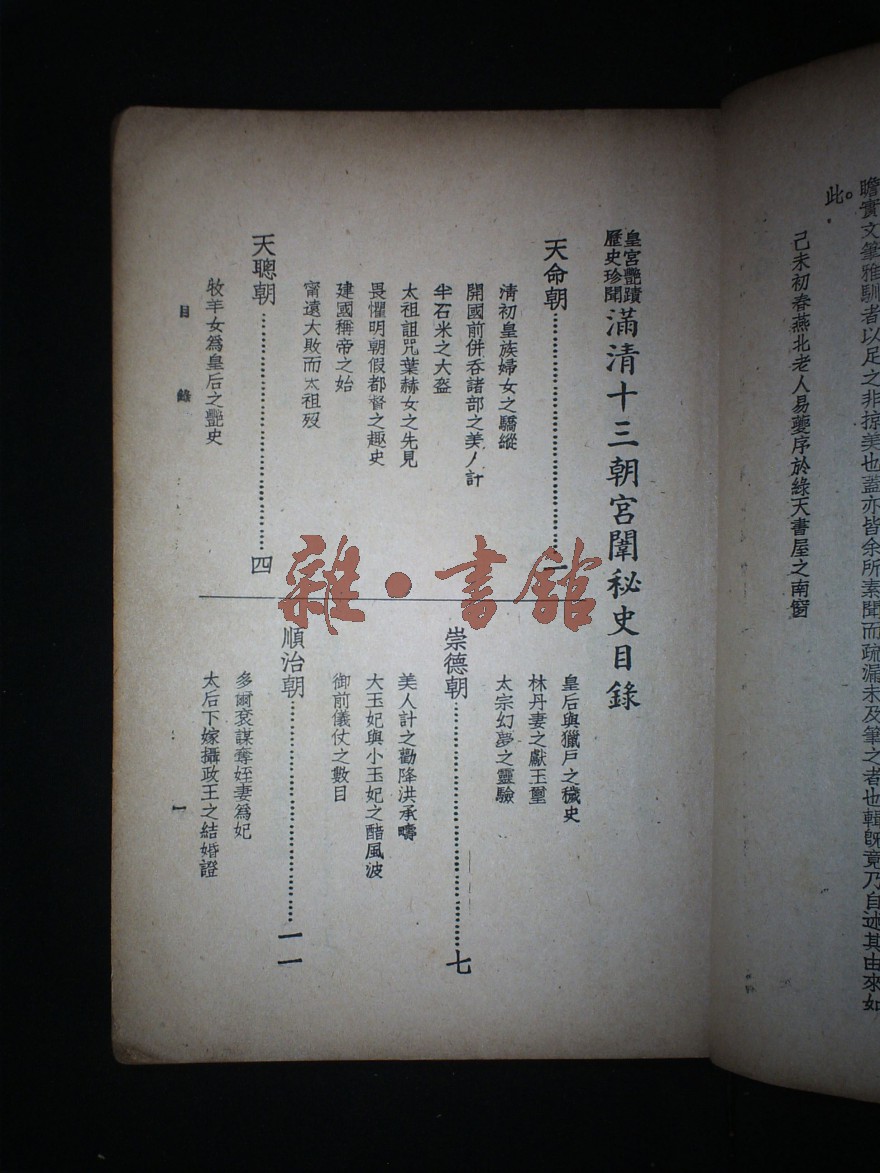 瞻實文筆雅馴者以足之非掠美也蓋亦皆余所素聞而疏漏未及筆之者也輯旣竟乃自述其由來如
此。
己未初春燕北老人易夔序於綠天書屋之南窗
皇宮艷蹟
歷史珍聞
滿清十三朝宮闈秘史目錄
天命朝……一
清初皇族婦女之驕縱
開國前併吞諸部之美人計
半石米之大盔
太祖詛咒葉赫女之先見
畏懼明朝假都督之趣史
建國稱帝之始
甯遠大敗而太祖歿
天聰朝……四
牧羊女爲皇后之艷史
皇后與獵戶之穢史
林丹妻之獻玉璽
太宗幻夢之靈驗
崇德朝……七
美人計之勸降洪承疇
大玉妃與小玉妃之醋風波
御前儀仗之數目
順治朝……一一
多爾袞謀奪姪妻爲妃
太后下嫁攝政王之結婚證
目錄
一
雜·書館